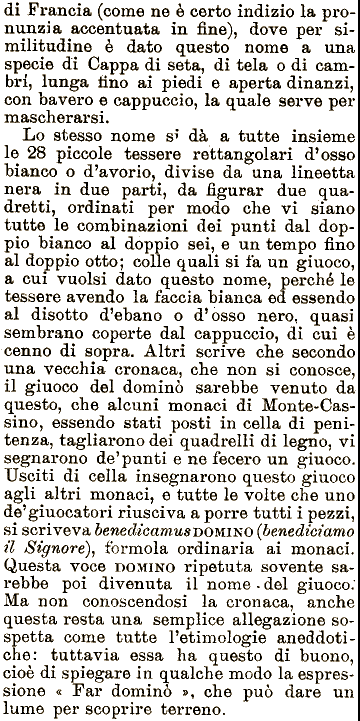 di Francia (come ne è certo indizio la pro-
nunzia accentuata in fine), dove per si-
militudine è dato questo nome a una
specie di Cappa di seta, di tela o di cam-
brí, lunga fino ai piedi e aperta dinanzi,
con bavero e cappuccio, la quale serve per
mascherarsi.
Lo stesso nome si dà a tutte insieme
le 28 piccole tessere rettangolari d'osso
bianco o d'avorio, divise da una lineetta
nera in due parti, da figurar due qua-
dretti, ordinati per modo che vi siano
tutte le combinazioni dei punti dal dop-
pio bianco al doppio sei, e un tempo fino
al doppio otto; colle quali si fa un giuoco,
a cui vuolsi dato questo nome, perché le
tessere avendo la faccia bianca ed essendo
al disotto d'ebano o d'osso nero, quasi
sembrano coperte dal cappuccio, di cui è
cenno di sopra. Altri scrive che secondo
una vecchia cronaca, che non si conosce,
il giuoco del dominò sarebbe venuto da
questo, che alcuni monaci di Monte-Cas-
sino, essendo stati posti in cella di peni-
tenza, tagliarono dei quadrelli di legno, vi
segnarono de'punti e ne fecero un giuoco.
Usciti di cella insegnarono questo giuoco
agli altri monaci, e tutte le volte che uno
de'giuocatori riusciva a porre tutti i pezzi,
si scriveva benedicamus DOMINO (benediciamo
il Signore), formola ordinaria ai monaci.
Questa voce DOMINO ripetuta sovente sa-
rebbe poi divenuta il nome del giuoco.
Ma non conoscendosi la cronaca, anche
questa resta una semplice allegazione so-
spetta come tutte l'etimologie aneddoti-
che: tuttavia essa ha questo di buono,
cioè di spiegare in qualche modo la espres-
sione « Far dominò », che può dare un
lume per scoprire terreno.